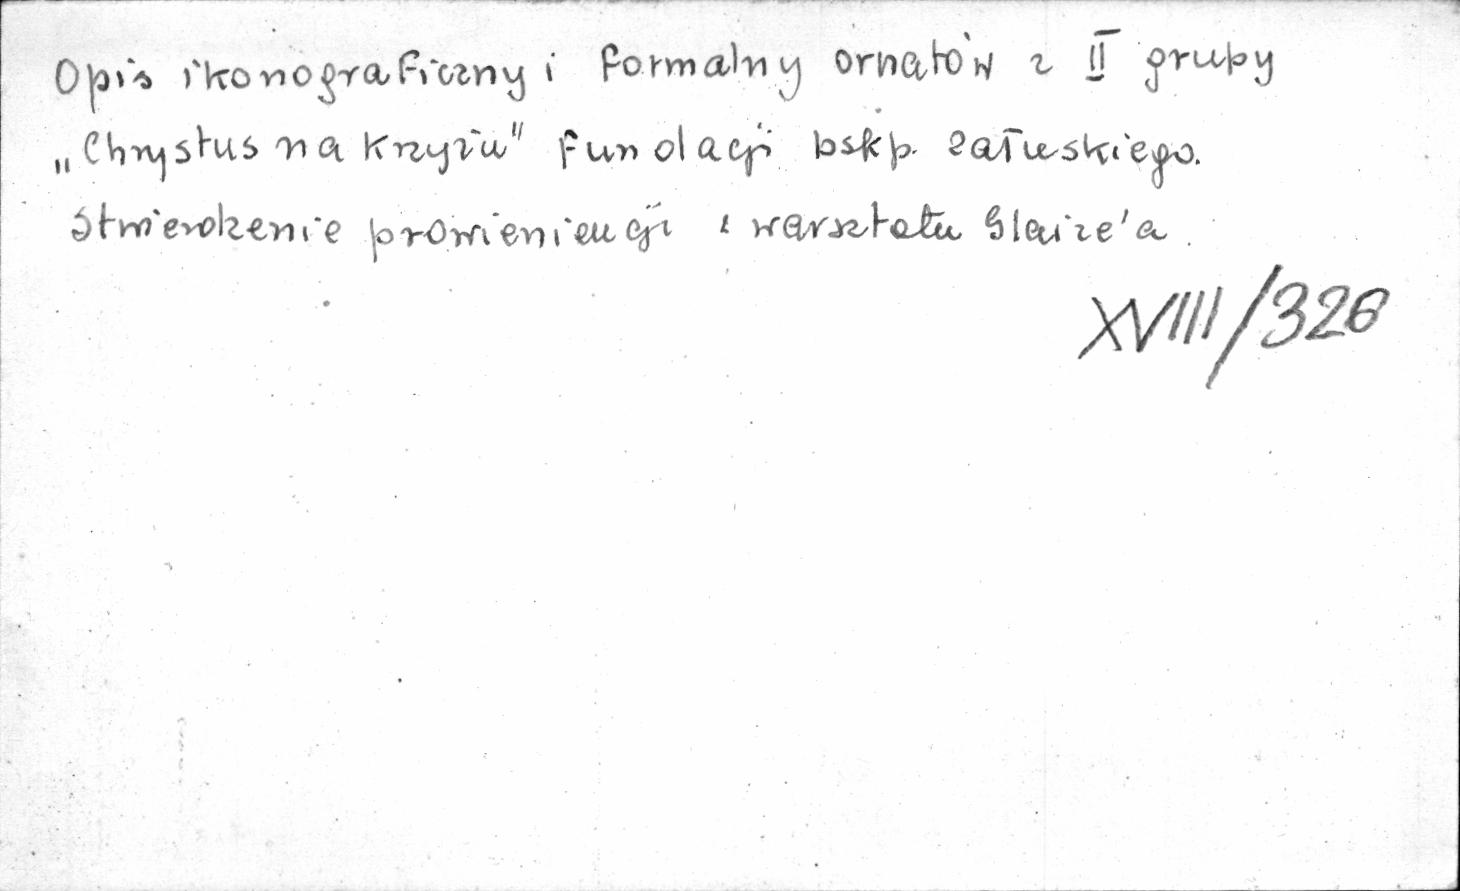 Opis ikonograficzny i formalny ornatów z II grupy
„Chrystus na krzyżu" fundacji bskp. Załuskiego.
Stwierdzenie prowieniencji z warsztatu Glaize'a.
XVIII/326